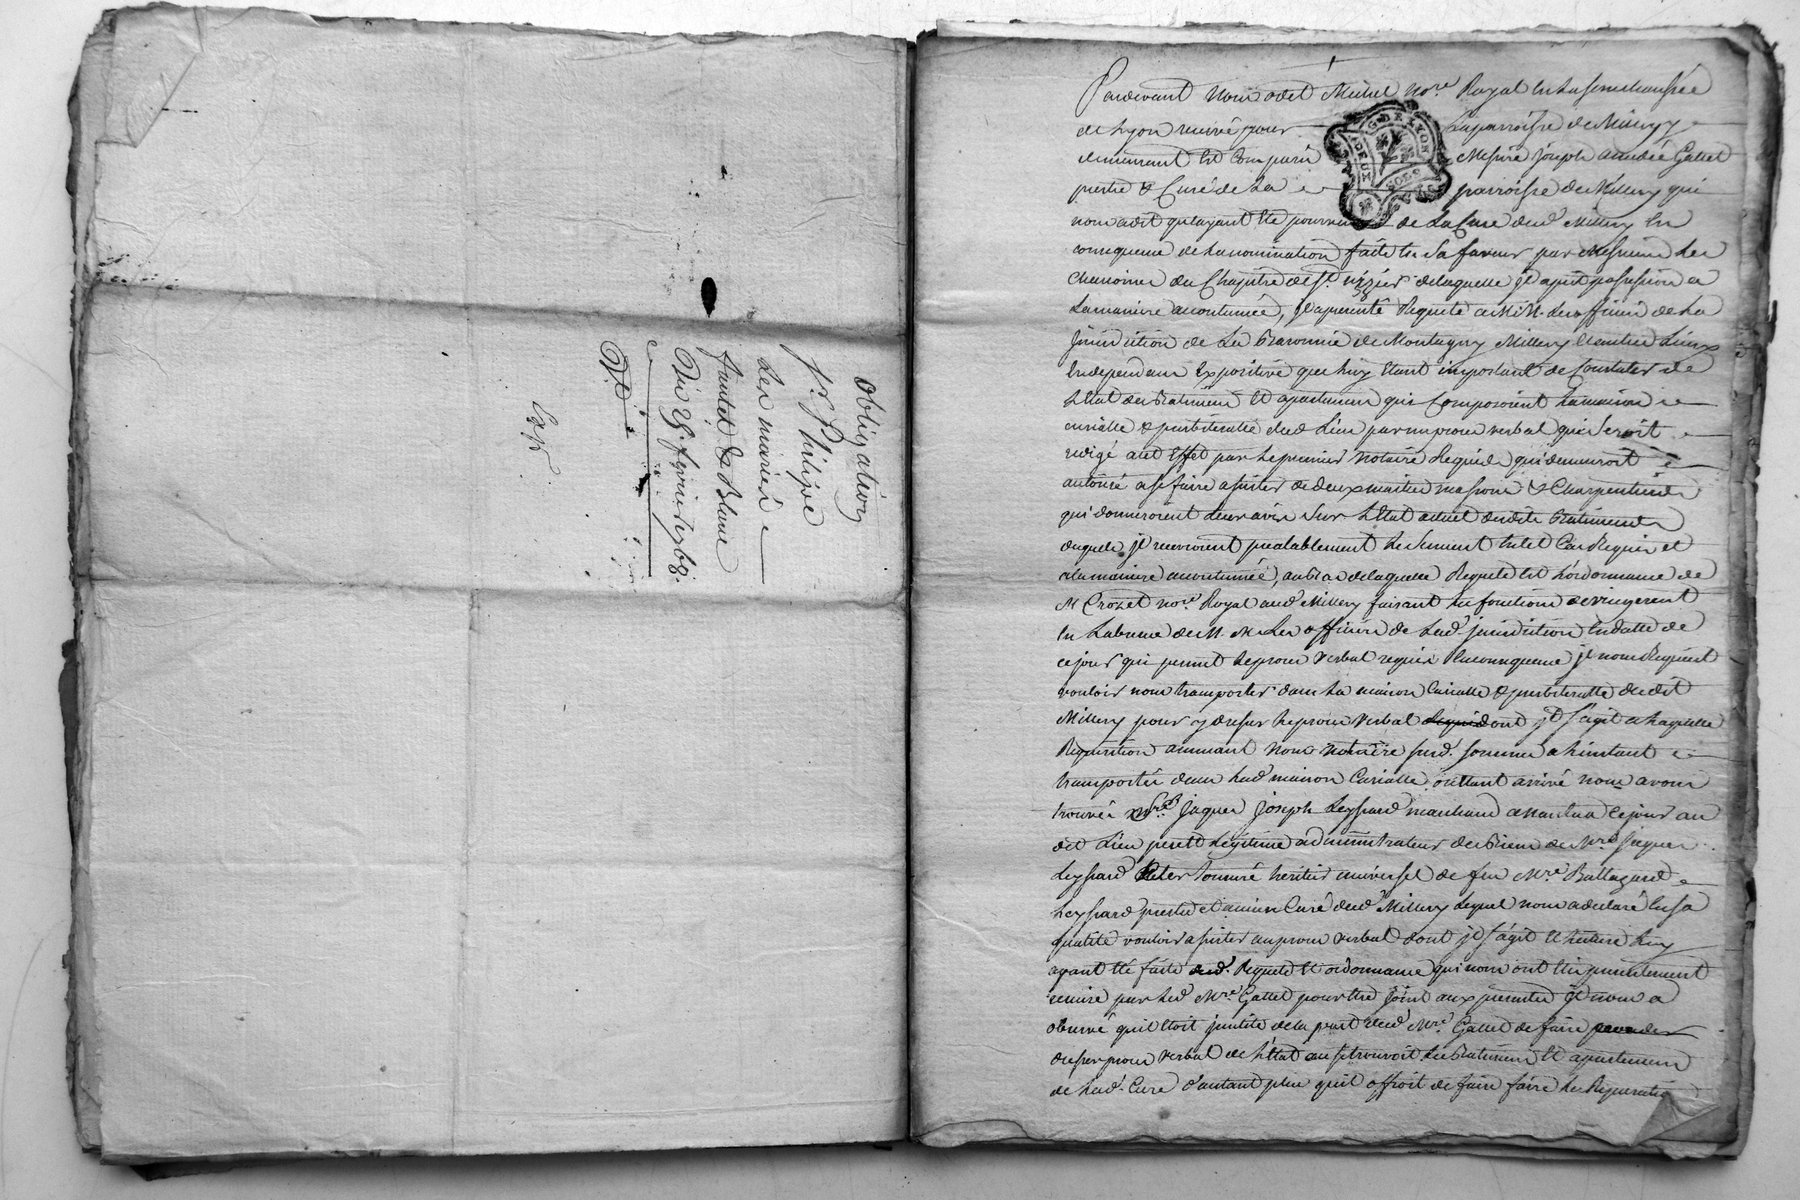 Obligation
Sr. Philippe
Les mariés
fautet & Blanc
Du 25. fevrier 1768.
Expé
Pardevant nous odet Michel nore. Royal en la senechaussée
de Lyon reservé pour la parroisse de Millery
demeurant Est Comparu Messire joseph amedée Gattet
prestre & Curé de La parroisse de Millery qui
nous a dit qu'ayant Eté pourvu de La Cure dud. Millery En
consequence de la nomination faitte En Sa faveur par Messieurs Les
Chanoines du Chapitre de St. nizier de laquelle jl a prit possession a
La maniere accoutumée, jl a presenté Requete a M.M. Les officiers de La
Jurisdiction de La Baronnie de Montagny Millery & autres Lieux
En dependans Expositive que luy Etant important de Constater de
L'Etat des Batimens Et apartemens qui Composoient La maison
curialle & presbiteralle dud. Lieu par un procès verbal qui Seroit
redigé a cet Effet par Le premier Notaire Requis qui demeuroit
autorisé a se faire assister de deux maitres massons & Charpentiers
qui donneroient Leur avis Sur L'Etat actuel desdits Batimens
desquels jl recevroient prealablement Le Serment En tel Cas Requis et
a la maniere accoutumée, au bas de laquelle Requete Est L'ordonnance de
M Crozet nore. Royal aud. Millery faisant les fonctions
En L'absence de M. M. Les officiers de Lad. jurisdiction En datte de
ce jour qui permet Le procès verbal requis En consequence jl nous Requiert
vouloir nous transporter dans La maison Curialle & presbiteralle dudit
Millery pour y dresser Le procès verbal dont jl s'agit a Laquelle
Requisition adherant nous Notaire susd. sommes a L'instant
transportés dans Lad. maison Curialle, ou Etant arrivé nous avons
trouvés Mre. jaques joseph Leyssard marchand a Nantua Ce jour au
dit Lieu pere & Legitime administrateur des Biens de Mre. jaques
Leyssard Clerc tonsuré heritier universel de feu Mre. Baltazard
Leyssard prestre Et ancien Curé dud. Millery Lequel nous a declaré En sa
qualité vouloir assister au procès verbal dont jl s'agit Et Lecture Luy
ayant Eté faitte desd. Requete Et ordonnance qui nous ont Eté presentement
remise par Led. Mre. Gattet pour Etre joint aux presentes jl nous a
observé qu'il Etoit inutile de la part dud. Mre. Gattet de faire
dresser procès verbal de L'Etat ou se trouvoit Les Batimens Et apartemens
de Lad. Cure d'autant plus qu'il offroit de faire faire Les Reparations